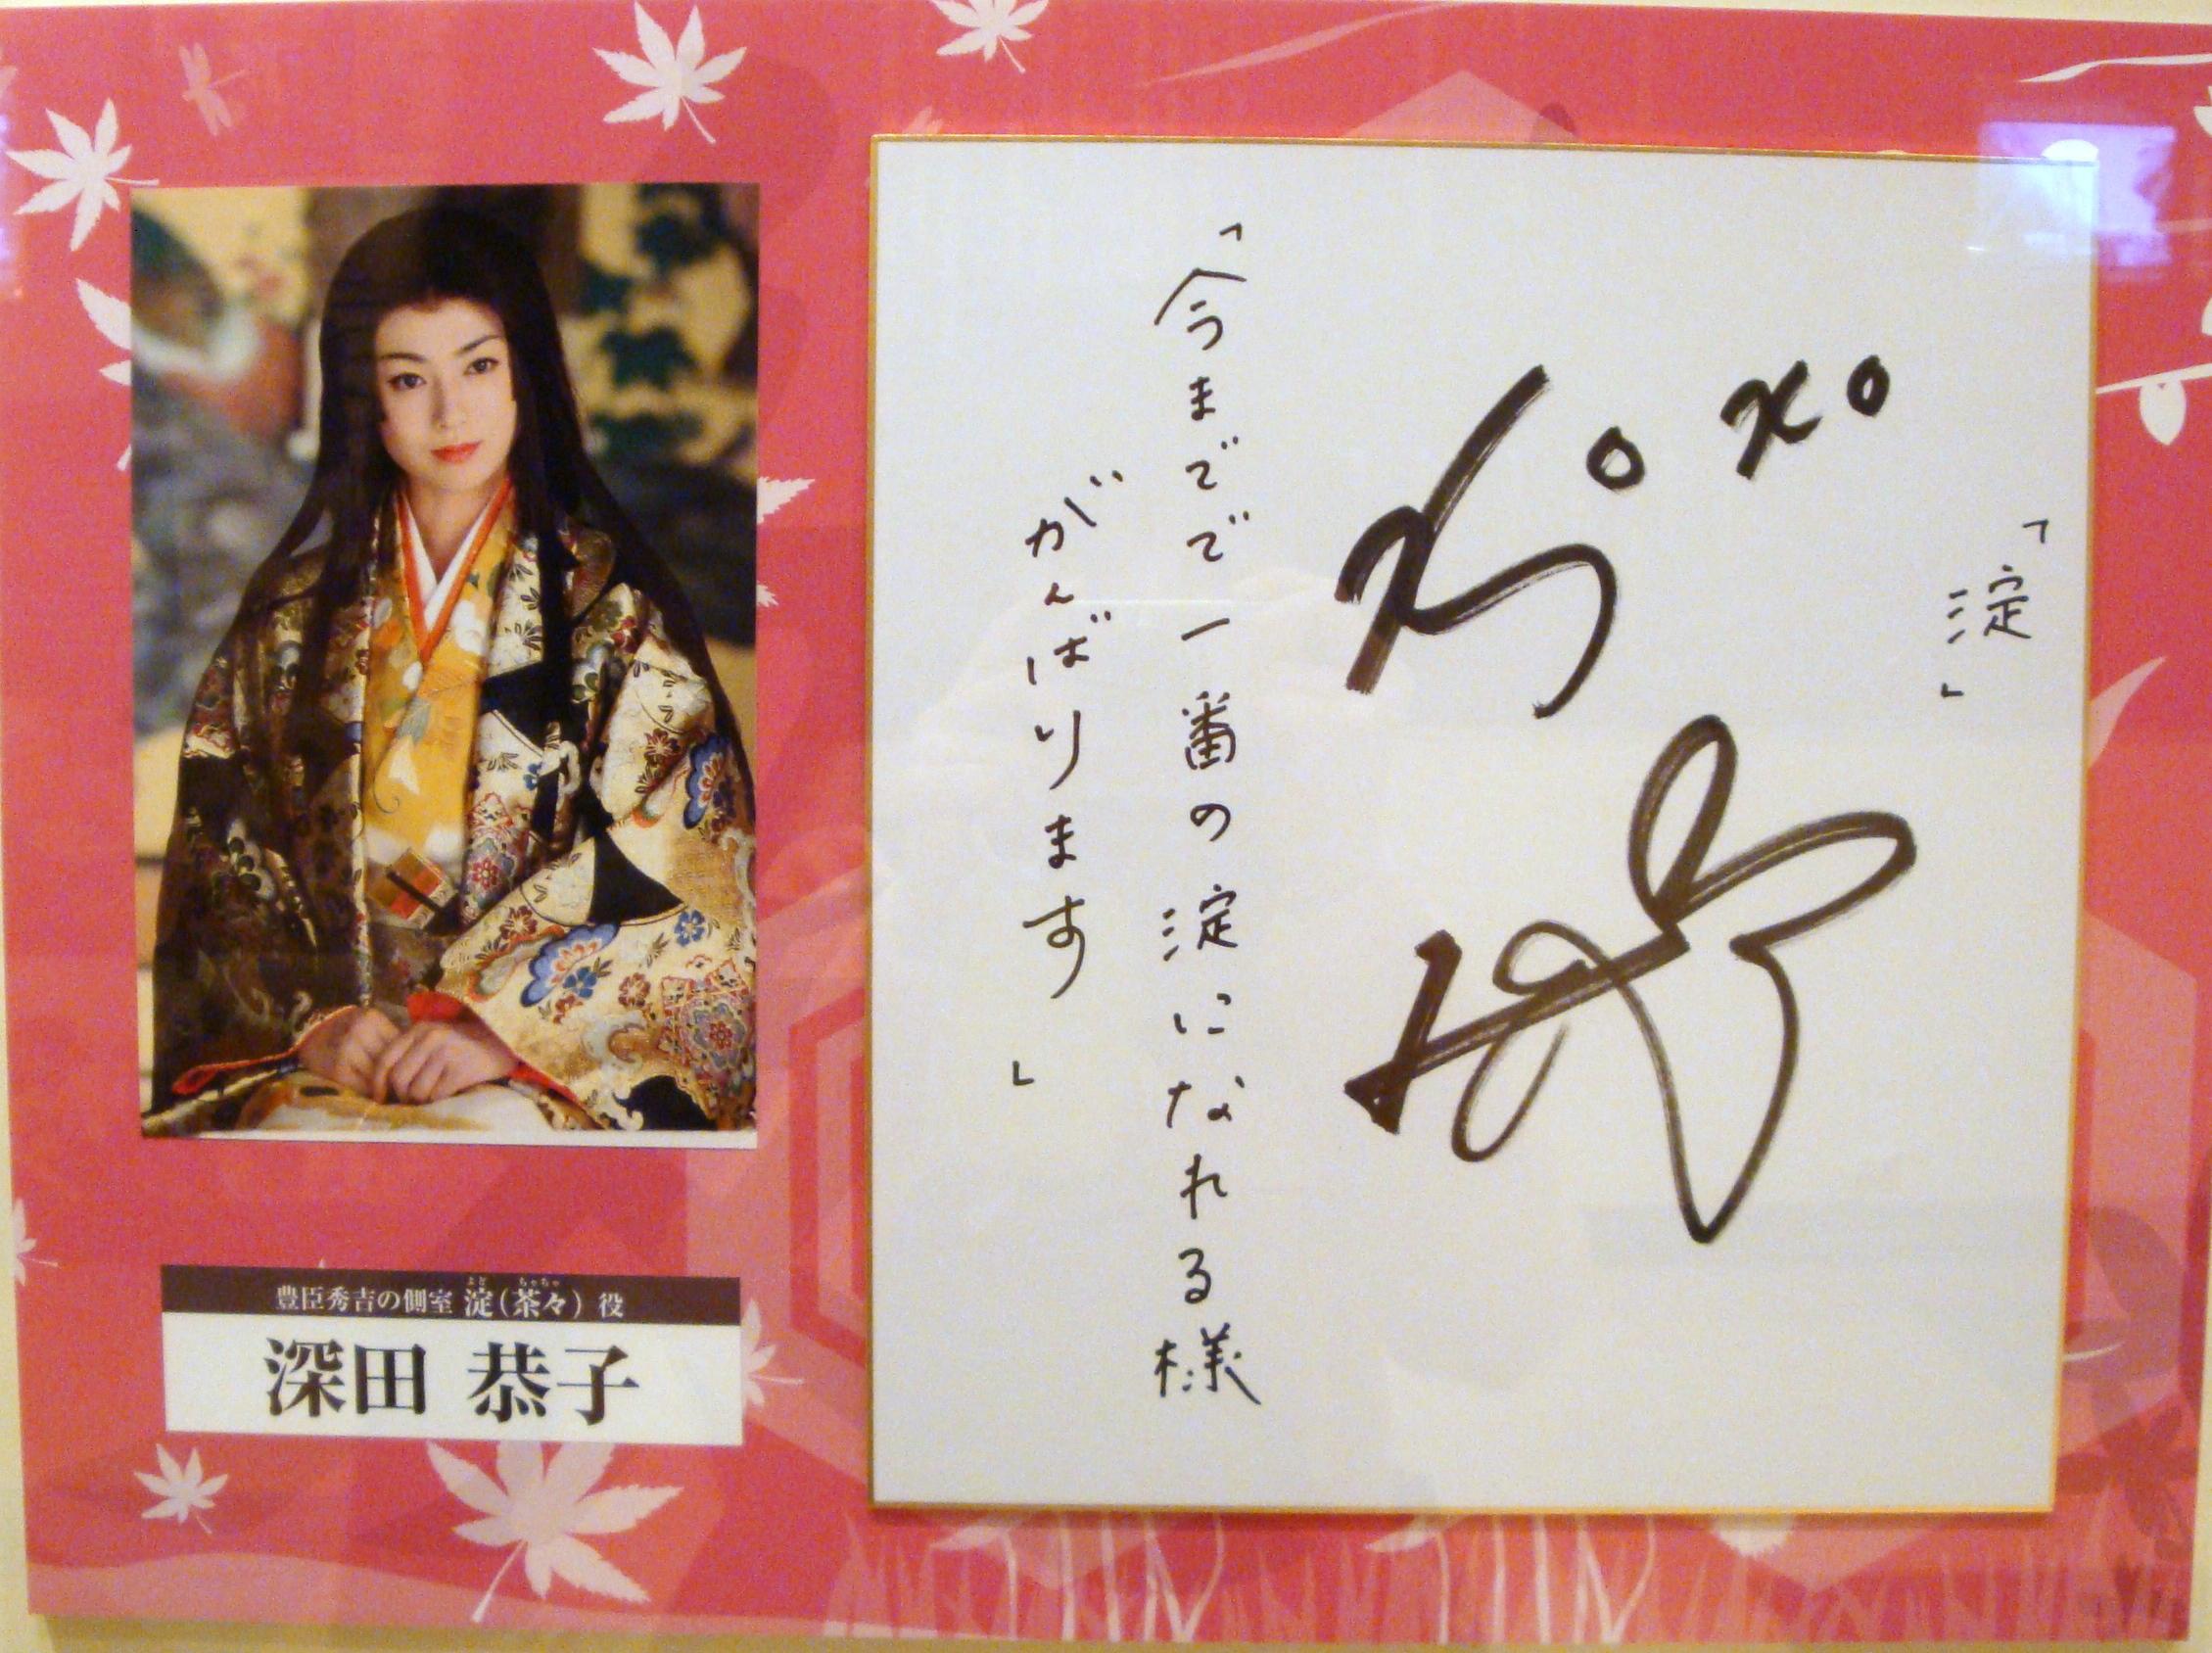 「淀」
「今までで一番の淀になれる様
がんばります」
豊臣秀吉の側室 淀(茶々) 役
よど ちゃちゃ
深田 恭子